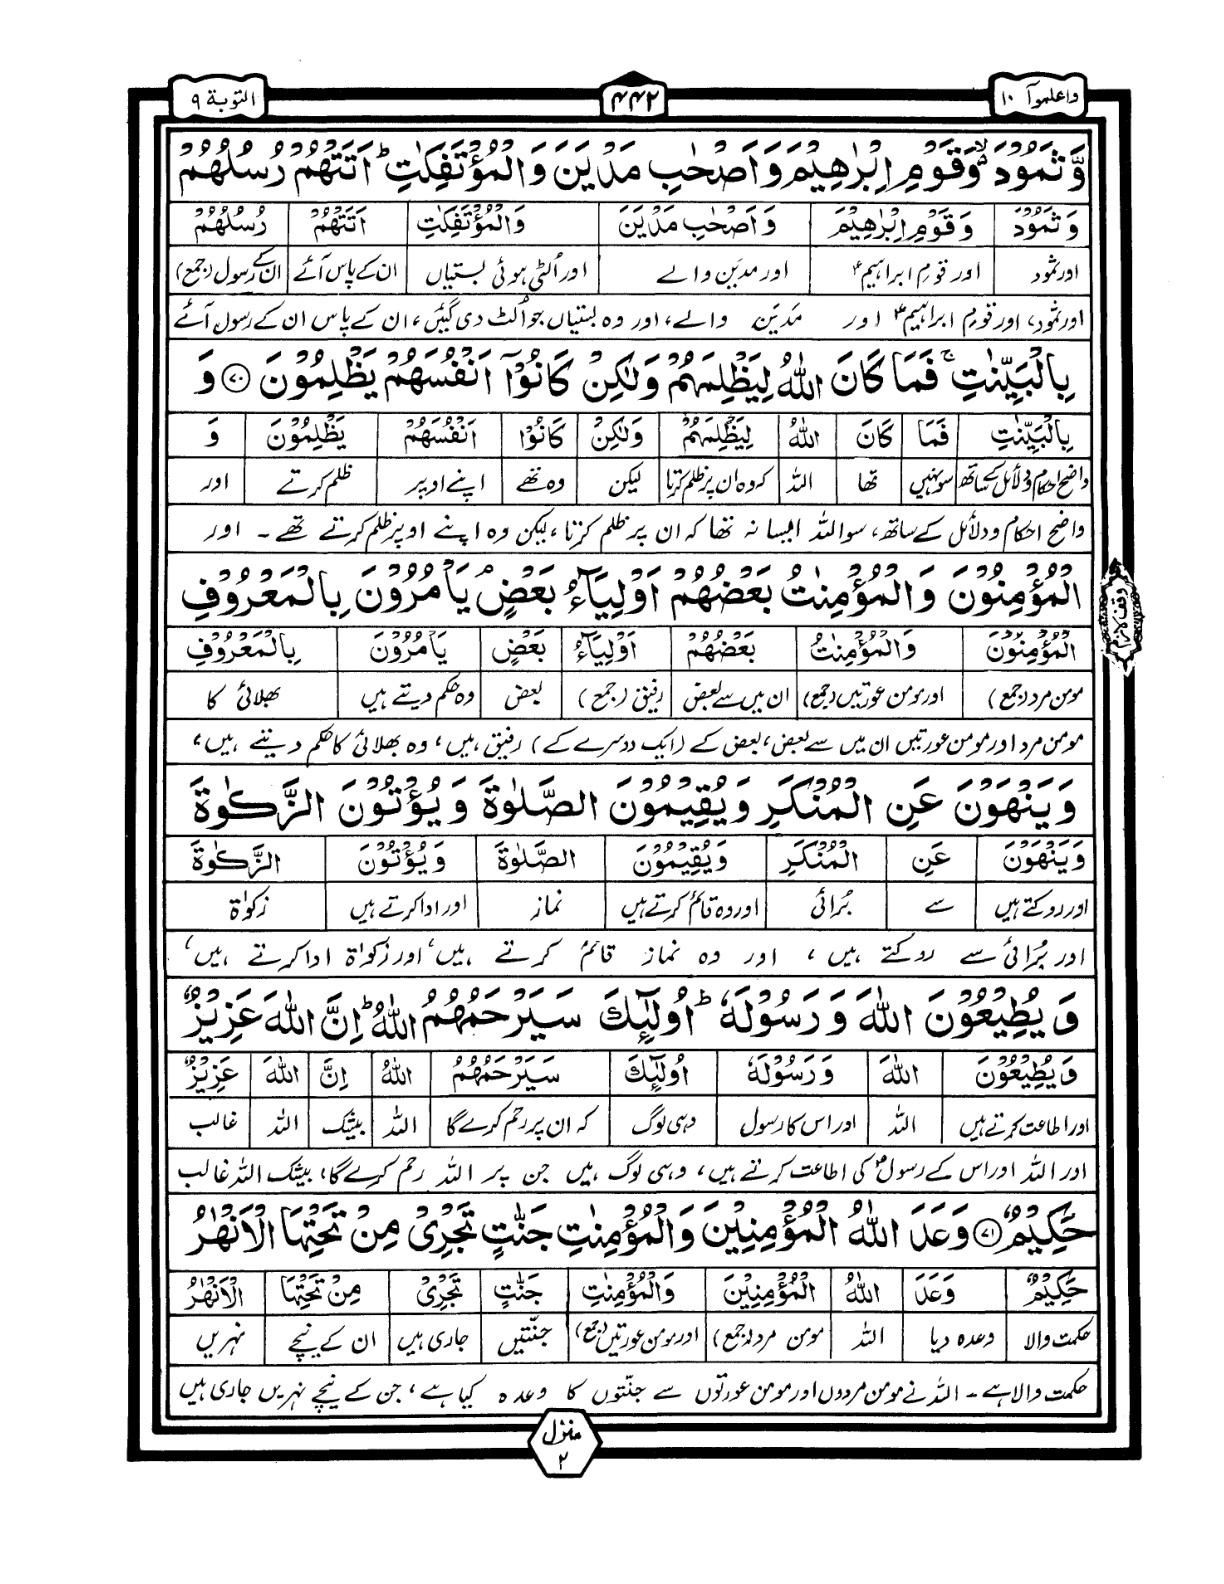 واعلموآ ١٠
۴۴۲
التوبة ٩
وَّثَمُوْدَ ۙ وَقَوْمِ اِبْرٰهِيْمَ وَاَصْحٰبِ مَدْيَنَ وَالْمُؤْتَفِكٰتِ ؕ اَتَتْهُمْ رُسُلُهُمْ
وَثَمُوْدَ وَقَوْمِ اِبْرٰهِيْمَ وَاَصْحٰبِ مَدْيَنَ وَالْمُؤْتَفِكٰتِ اَتَتْهُمْ رُسُلُهُمْ
اور ثمود اور قوم ابراہیمؑ اور مدین والے اور اُلٹی ہوئی بستیاں ان کے پاس آئے ان کے رسول (جمع)
اور ثمود، اور قوم ابراہیمؑ اور مَدیَن والے، اور وہ بستیاں جو اُلٹ دی گئیں، ان کے پاس ان کے رسول آئے
بِالْبَيِّنٰتِ ۚ فَمَا كَانَ اللّٰهُ لِيَظْلِمَهُمْ وَلٰكِنْ كَانُوْٓا اَنْفُسَهُمْ يَظْلِمُوْنَ ﴿۷۰﴾ وَ
بِالْبَيِّنٰتِ فَمَا كَانَ اللّٰهُ لِيَظْلِمَهُمْ وَلٰكِنْ كَانُوْٓا اَنْفُسَهُمْ يَظْلِمُوْنَ وَ
واضح احکام و دلائل کے ساتھ سو نہیں تھا اللہ کہ وہ ان پر ظلم کرتا لیکن وہ تھے اپنے اوپر ظلم کرتے اور
واضح احکام و دلائل کے ساتھ، سو اللہ ایسا نہ تھا کہ ان پر ظلم کرتا، لیکن وہ اپنے اوپر ظلم کرتے تھے۔ اور
الْمُؤْمِنُوْنَ وَالْمُؤْمِنٰتُ بَعْضُهُمْ اَوْلِيَآءُ بَعْضٍ ۘ يَاْمُرُوْنَ بِالْمَعْرُوْفِ
وقف لازم
الْمُؤْمِنُوْنَ وَالْمُؤْمِنٰتُ بَعْضُهُمْ اَوْلِيَآءُ بَعْضٍ يَاْمُرُوْنَ بِالْمَعْرُوْفِ
مومن مرد (جمع) اور مومن عورتیں (جمع) ان میں سے بعض رفیق (جمع) بعض وہ حکم دیتے ہیں بھلائی کا
مومن مرد اور مومن عورتیں ان میں سے بعض، بعض کے (ایک دوسرے کے) رفیق ہیں، وہ بھلائی کا حکم دیتے ہیں،
وَيَنْهَوْنَ عَنِ الْمُنْكَرِ وَيُقِيْمُوْنَ الصَّلٰوةَ وَيُؤْتُوْنَ الزَّكٰوةَ
وَيَنْهَوْنَ عَنِ الْمُنْكَرِ وَيُقِيْمُوْنَ الصَّلٰوةَ وَيُؤْتُوْنَ الزَّكٰوةَ
اور روکتے ہیں سے بُرائی اور وہ قائم کرتے ہیں نماز اور ادا کرتے ہیں زکوٰۃ
اور بُرائی سے روکتے ہیں، اور وہ نماز قائم کرتے ہیں، اور زکوٰۃ ادا کرتے ہیں،
وَيُطِيْعُوْنَ اللّٰهَ وَرَسُوْلَهٗ ؕ اُولٰٓئِكَ سَيَرْحَمُهُمُ اللّٰهُ ؕ اِنَّ اللّٰهَ عَزِيْزٌ
وَيُطِيْعُوْنَ اللّٰهَ وَرَسُوْلَهٗ اُولٰٓئِكَ سَيَرْحَمُهُمُ اللّٰهُ اِنَّ اللّٰهَ عَزِيْزٌ
اور اطاعت کرتے ہیں اللہ اور اس کا رسول وہی لوگ کہ ان پر رحم کرے گا اللہ بیشک اللہ غالب
اور اللہ اور اس کے رسولؐ کی اطاعت کرتے ہیں، وہی لوگ ہیں جن پر اللہ رحم کرے گا، بیشک اللہ غالب
حَكِيْمٌ ﴿۷۱﴾ وَعَدَ اللّٰهُ الْمُؤْمِنِيْنَ وَالْمُؤْمِنٰتِ جَنّٰتٍ تَجْرِيْ مِنْ تَحْتِهَا الْاَنْهٰرُ
حَكِيْمٌ وَعَدَ اللّٰهُ الْمُؤْمِنِيْنَ وَالْمُؤْمِنٰتِ جَنّٰتٍ تَجْرِيْ مِنْ تَحْتِهَا الْاَنْهٰرُ
حکمت والا وعدہ دیا اللہ مومن مرد (جمع) اور مومن عورتیں (جمع) جنّتیں جاری ہیں ان کے نیچے نہریں
حکمت والا ہے۔ اللہ نے مومن مردوں اور مومن عورتوں سے جنّتوں کا وعدہ کیا ہے، جن کے نیچے نہریں جاری ہیں
منزل
۲